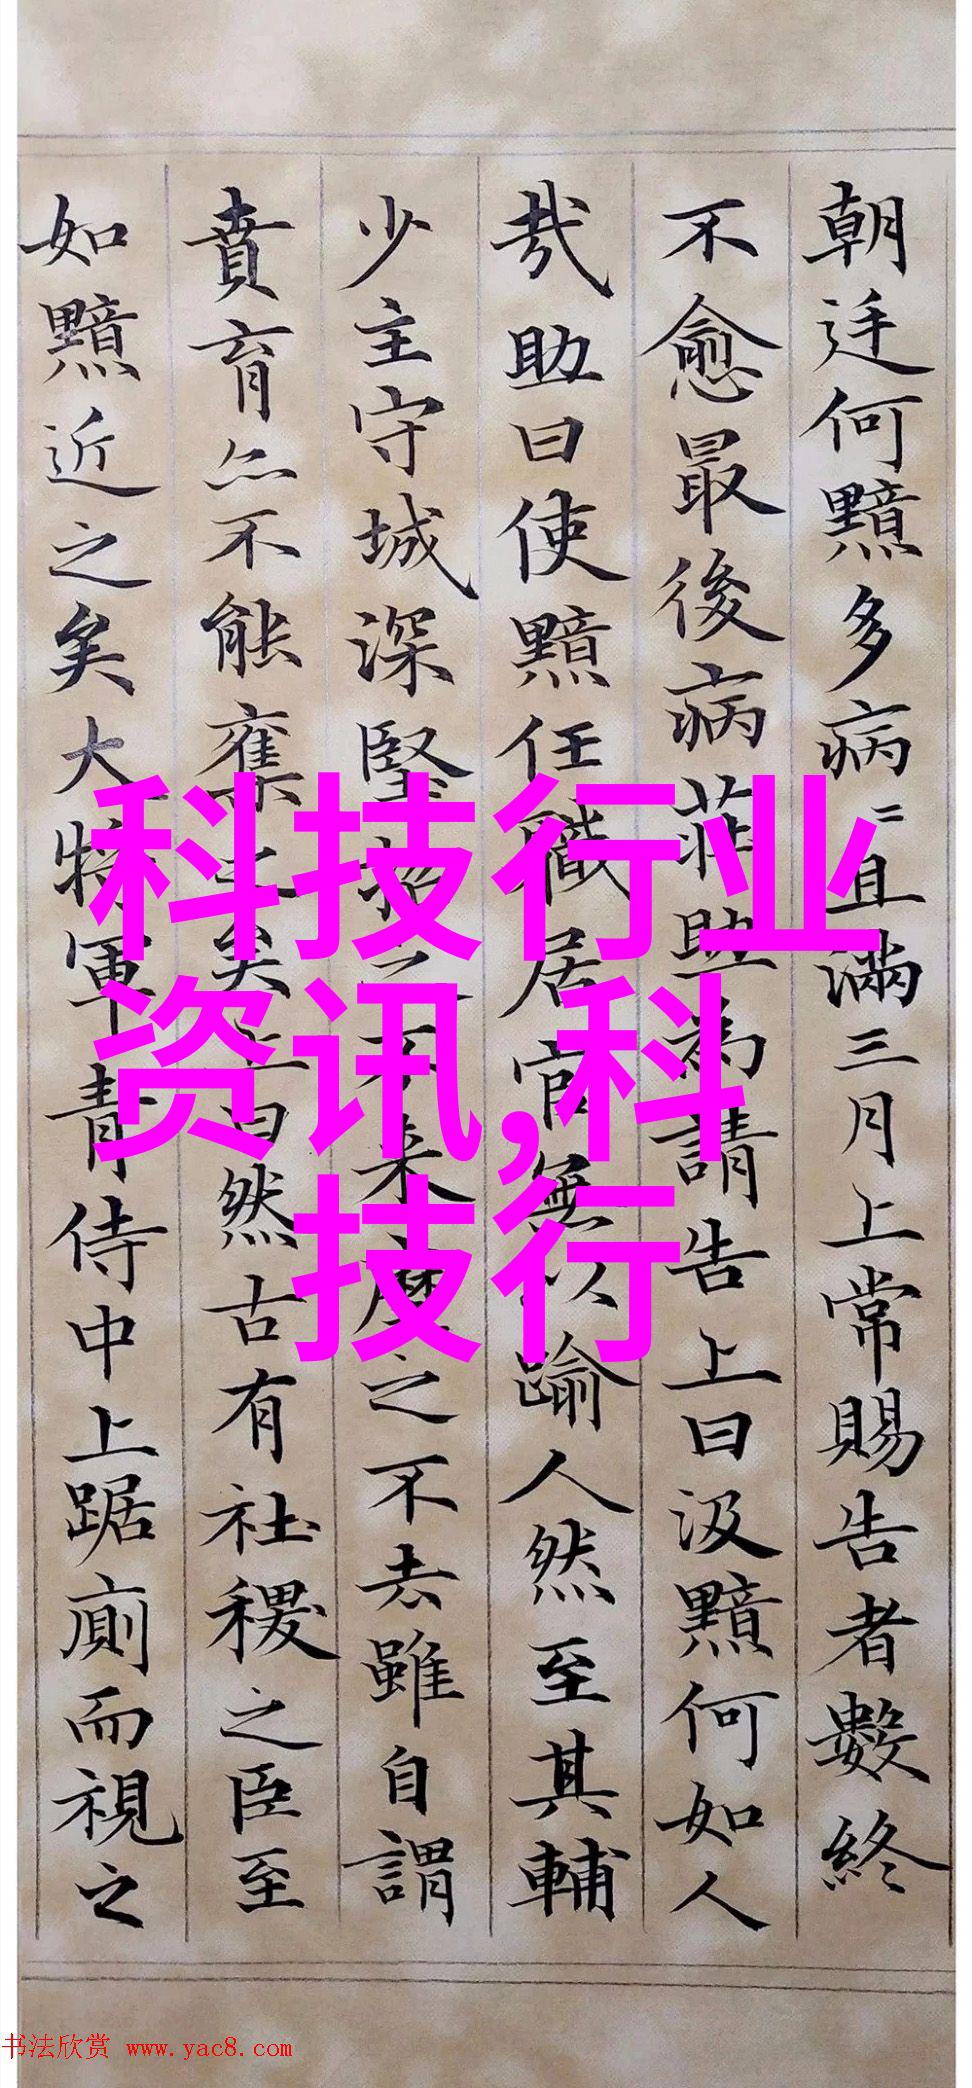 朝廷何黯多病〻且滿三月上常賜告者數終
不愈最後病莊助為請告上曰汲黯何如人
㢤助曰使黯任職居官無以踰人然至其輔
少主守城深堅招之不来麾之不去雖自謂
賁育亦不能奪之矣上曰然古有社稷之臣至
如黯近之矣大將軍青侍中上踞廁而視之
科技行业
资讯,科
技行
书法欣赏 www.yac8.com